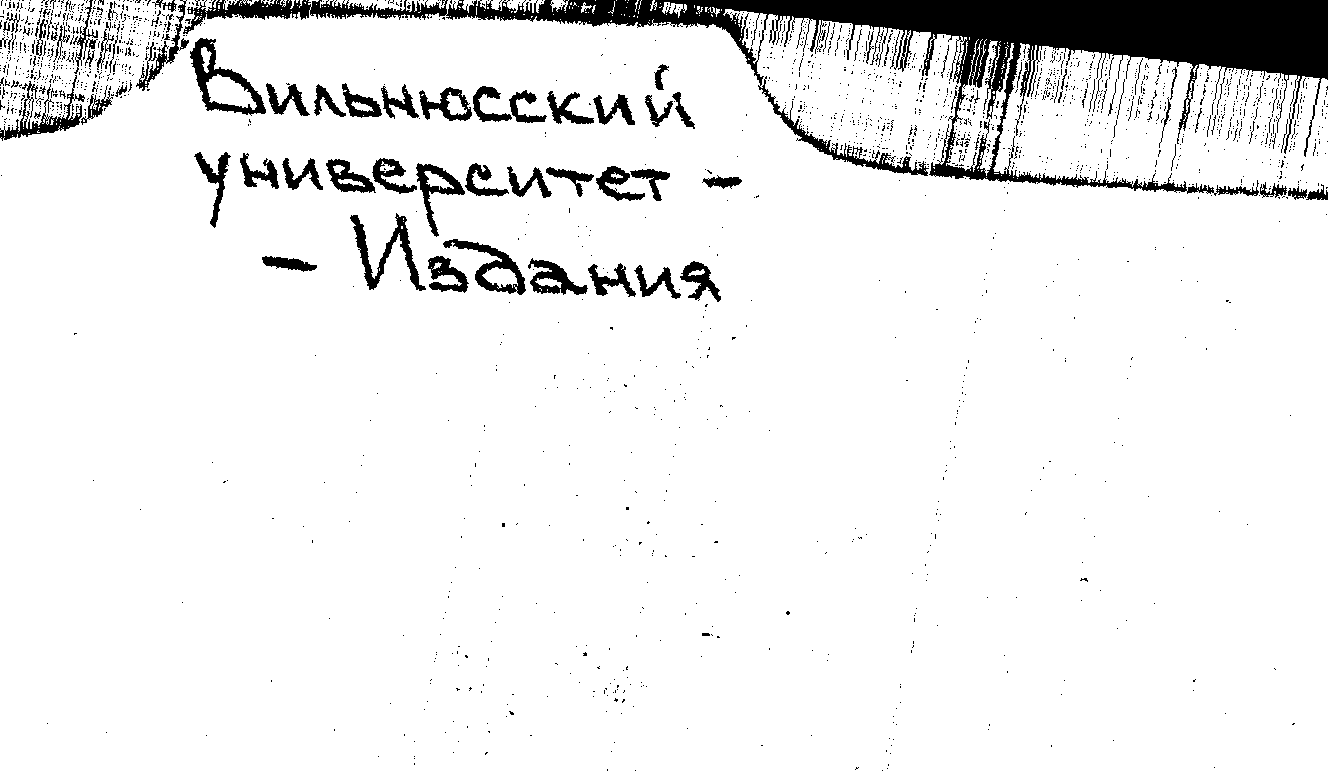 Вильнюсский
университет –
– Издания